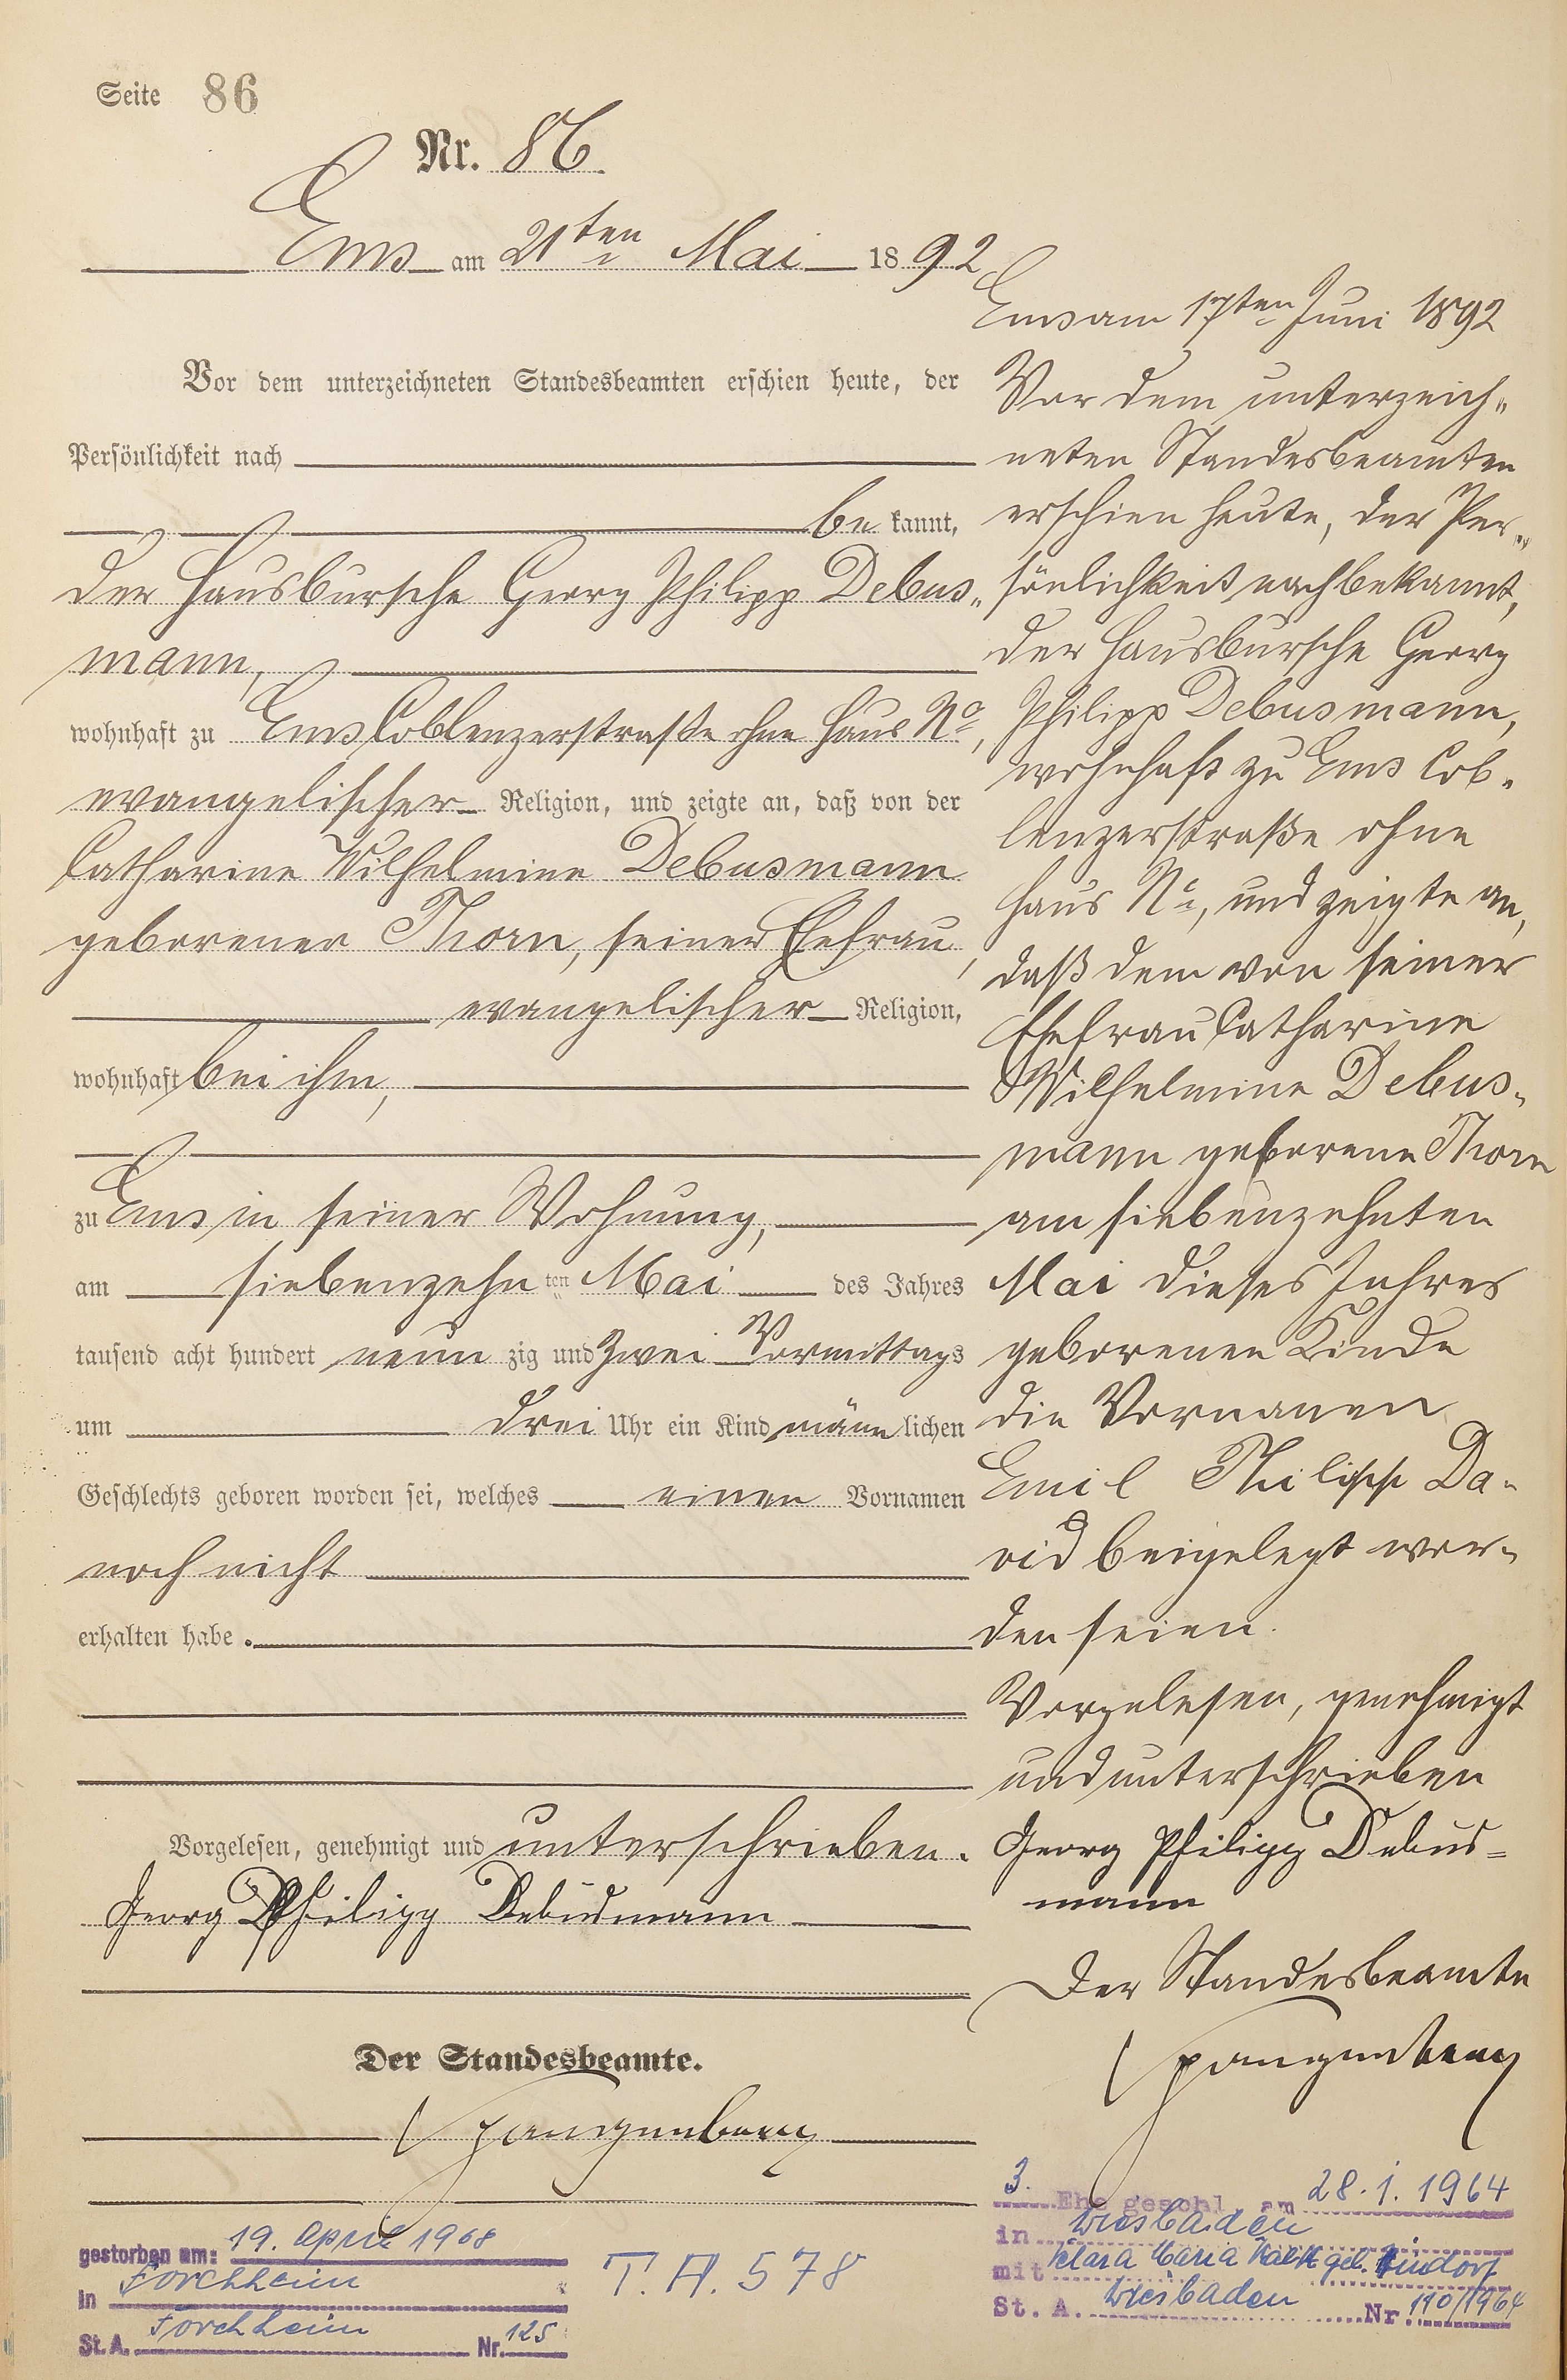 Seite 86
Nr. 86.
Ems am 21ten Mai 1892
Vor dem unterzeichneten Standesbeamten erschien heute, der
Persönlichkeit nach
be kannt,
der Hausbursche Georg Philipp Debus„
mann,
wohnhaft zu Ems Coblenzerstraße ohne Haus No,
evangelischer Religion, und zeigte an, daß von der
Catharine Wilhelmine Debusmann
geborener Thorn, seiner Ehefrau,
evangelischer Religion,
wohnhaft bei ihm,
zu Ems in seiner Wohnung,
am siebenzehn ten Mai des Jahres
tausend acht hundert neun zig und zwei Vormittags
um drei Uhr ein Kind männ lichen
Geschlechts geboren worden sei, welches einen Vornamen
noch nicht
erhalten habe.
Vorgelesen, genehmigt und unterschrieben.
Georg Philipp Debusmann
Der Standesbeamte.
Spangenberg
Ems am 17ten Juni 1892
Vor dem unterzeich„
neten Standesbeamten
erschien heute, der Per„
sönlichkeit nach bekannt,
der Hausbursche Georg
Philipp Debusmann,
wohnhaft zu Ems Cob„
lenzerstraße ohne
Haus No, und zeigte an,
daß dem von seiner
Ehefrau Catharine
Wilhelmine Debus„
mann geborene Thorn
am siebenzehnten
Mai dieses Jahres
geborenen Kinde
die Vornamen
Emil Philipp Da„
vid beigelegt wor„
den seien.
Vorgelesen, genehmigt
und unterschrieben
Georg Philipp Debus=
mann
Der Standesbeamte
Spangenberg
gestorben am: 19. April 1968
in Forchheim
St.A. Forchheim Nr. 125
T. A. 578
3. Ehe geschl. am 28.1.1964
in Wiesbaden
mit Klara Maria geb.
St. A. Wiesbaden Nr. 110/1964